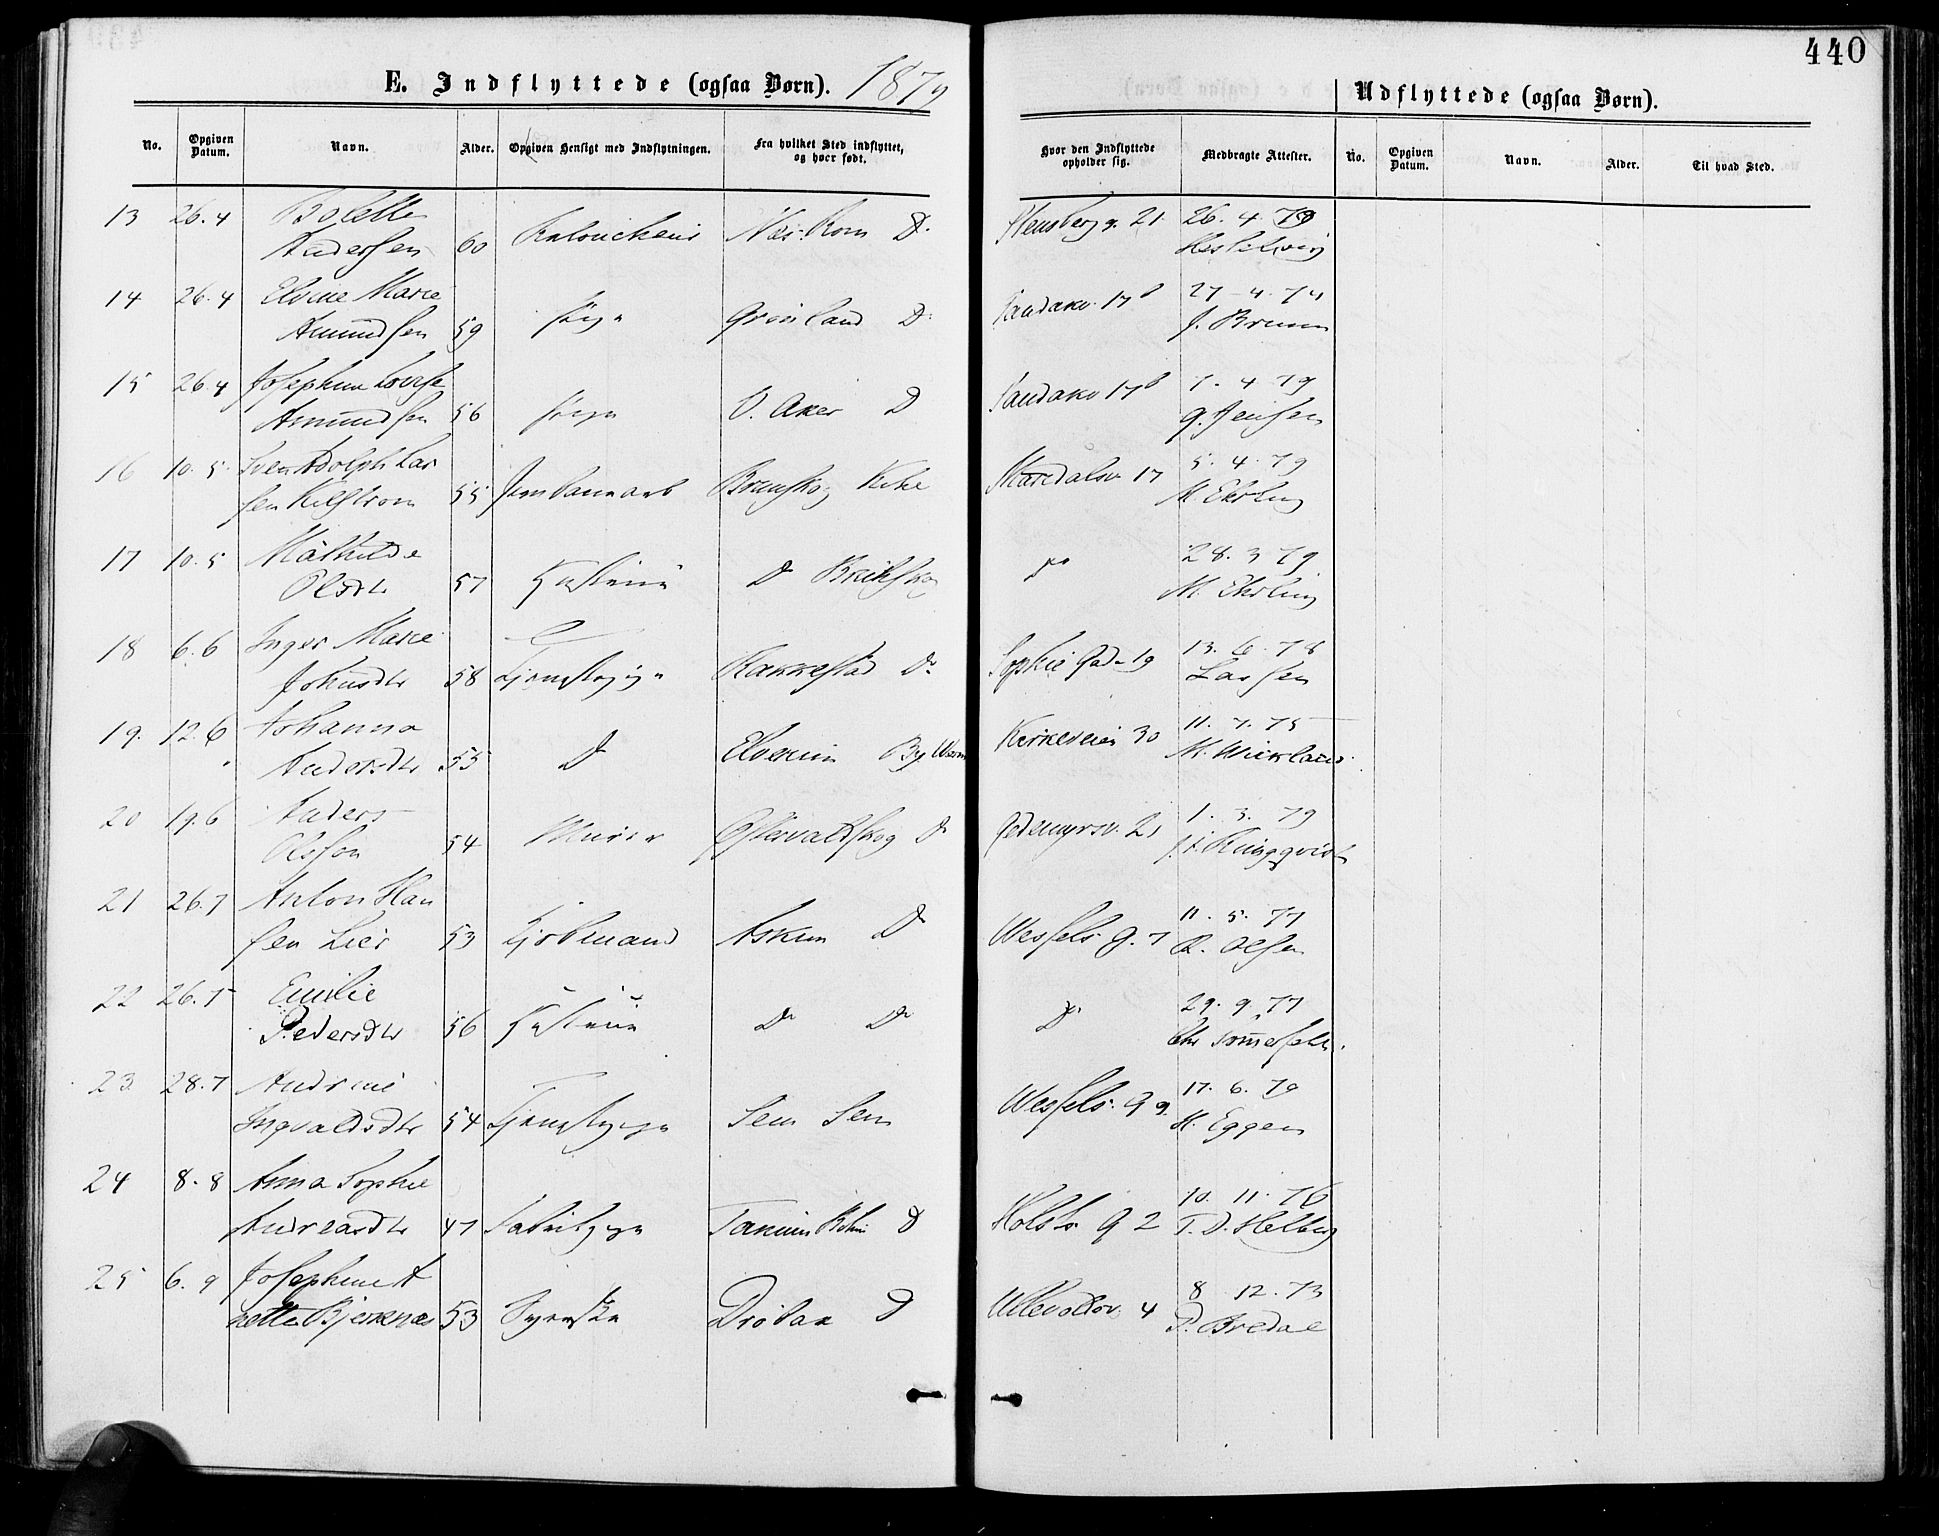 440
E. Indflyttede (ogsaa Børn). 1879
Udflyttede (ogsaa Børn).
No. Opgiven Datum. Navn. Alder. Opgiven Hensigt med Indflytningen. Fra hvilket Sted indflyttet, og hvor født. Hvor den Indflyttede opholder sig. Medbragte Attester. No. Opgiven Datum. Navn. Alder. Til hvad Sted.
13 26.4 Bolette Stensberg g. 21 26.4.79
Andersen 60 Næs. Rom D.
14 26.4 Elvine Marie Sandakv. 17b 27-4.74
Amundsen 59 Grønland D. J. Bruun
15 26.4 Josephine Lovise Sandakv 17b 7.4 79
Amundsen 56 V. Aker D G. Jensen
16 10.5 Sven Adolph Lar Maridalsv 17 5.4.79
sen 55 Jernbanearb Brunskog M. Ehrling
17 10.5 Mathilde Do 28.3 79
Olsdtr 57 Hustru D Brunskog M. Ehrling
18 6.6 Inger Marie Sophies Gade 19 13.6.78
Johnsdtr 58 Tjenstepige Rakkestad Do Larsen
19. 12.6 Johanna Kirkeveien 30 11.7.75
Andersdtr 55 D Elverum By Werm
20 19.6 Anders Gedemyrsv. 21 1.3.79
Olsson 54 Murer Østervaldskog D Ringqvist
21 26.7 Anton Han Wessels g. 7 11.5.77
sen Lier 53 Kjøbmand Askim D R. Olsen
22 26.7 Emilie D 29.9.77
Pedersdtr 56 Hustru D D Chr Sommerfelt.
23 28.7 Andrine Wessels. G 9. 17.6.79
Ingvaldsdtr 54 Tjenstepige Sem Sem Eggen
24 8.8 Anna Sophie Holsts. G 2 10.11.76
Andreasdtr 47 Fabrikpige Tanum D
25 6.9 Josephine A Ullevoldsv. 4 8 12.73
nette Bjerknes 53 Drøbak D P. Bredal